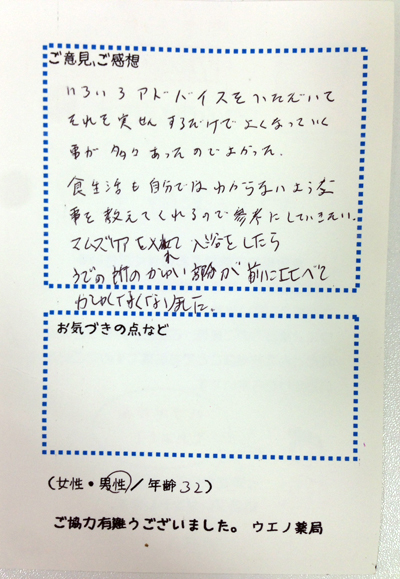 ご意見、ご感想
いろいろアドバイスをいただいて
それを実せんするだけでよくなっていく
事が多々あったのでよかった.
食生活も自分ではわからないような
事を教えてくれるので参考にしていきたい.
スムズケアを入れて入浴をしたら
うでの所のかゆい部分が前に比べて
かゆくなくなりました.
お気づきの点など
(女性・男性/年齢32)
ご協力有難うございました。 ウエノ薬局